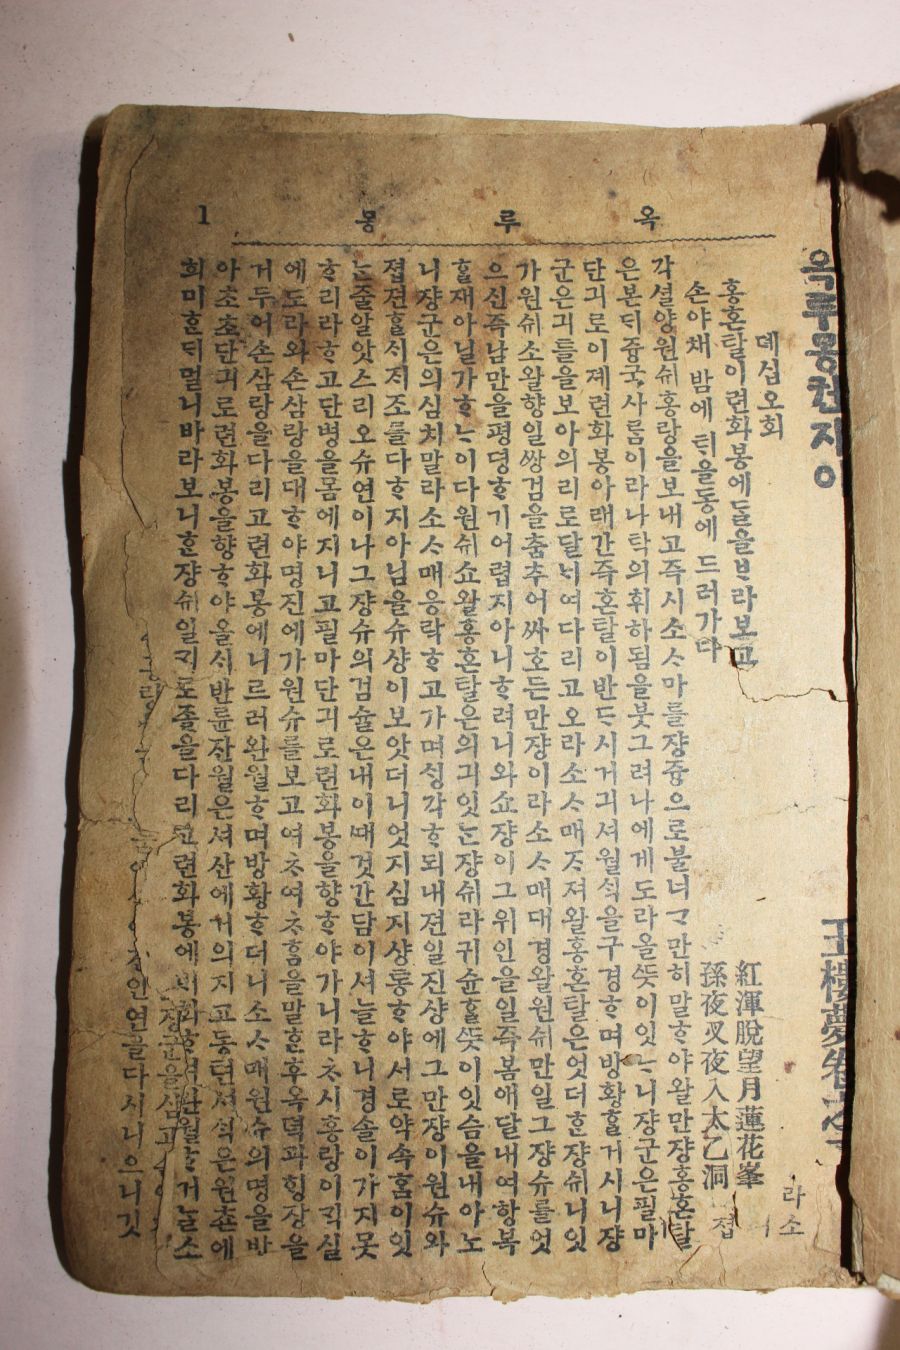 옥루몽권지이
데십오회
홍혼탈이련화봉에ᄃᆞᆯ을ᄇᆞ라보고
손야채 밤에 ᄐᆡ을동에 드러가다
紅渾脫望月蓮花峯
孫夜叉夜入太乙洞
옥루몽 1
각셜양원슈ㅣ홍랑을보내고즉시소ᄉᆞ마를쟝즁으로불너ᄀᆞ만히말ᄒᆞ야왈만쟝홍혼탈
은본ᄃᆡ즁국사ᄅᆞᆷ이라나탁의휘하됨을붓그려나에게도라올ᄯᅳᆺ이잇ᄂᆞ니쟝군은필마
단긔로이졔련화봉아래간즉혼탈이반ᄃᆞ시거긔셔월ᄉᆡᆨ을구경ᄒᆞ며방황ᄒᆞᆯ거시니쟝
군은긔틀을보아의리로달ᄂᆡ여다리고오라소ᄉᆞ매ᄌᆞ져왈홍혼탈은엇더ᄒᆞᆫ쟝슈ㅣ니잇
가원슈ㅣ소왈향일쌍검을춤추어싸호든만쟝이라소ᄉᆞ매대경왈원슈ㅣ만일그쟝슈를엇
으신즉남만을평뎡ᄒᆞ기어렵지아니ᄒᆞ려니와쇼쟝이그위인을일즉봄애달내여항복
ᄒᆞᆯ재아닐가ᄒᆞᄂᆞ이다원슈ㅣ쇼왈홍혼탈은의긔잇ᄂᆞᆫ쟝슈ㅣ라귀슌ᄒᆞᆯᄯᅳᆺ이잇슴을내아노
니쟝군은의심치말라소ᄉᆞ매응락ᄒᆞ고가며ᄉᆡᆼ각ᄒᆞ되내젼일진샹에그만쟝이원슈와
졉젼ᄒᆞᆯᄉᆡᄌᆡ조를다ᄒᆞ지아님을슈샹이보앗더니엇지심지샹통ᄒᆞ야서로약속홈이잇
ᄂᆞᆫ줄알앗스리오슈연이나그쟝슈의검슐은내이때것간담이셔늘ᄒᆞ니경솔이가지못
ᄒᆞ리라ᄒᆞ고단병을몸에지니고필마단긔로련화봉을향ᄒᆞ야가니라ᄎᆞ시홍랑이ᄀᆡᆨ실
에도라와손삼랑을대ᄒᆞ야명진에가원슈를보고여ᄎᆞ여ᄎᆞ홈을말ᄒᆞᆫ후옥뎍과ᄒᆡᆼ장을
거두어손삼랑을다리고련화봉에니르러완월ᄒᆞ며방황ᄒᆞ더니소ᄉᆞ매원슈의명을반
아초초단긔로련화봉을향ᄒᆞ야올ᄉᆡ반륜잔월은셔산에
희미ᄒᆞᆫᄃᆡ멀니바라보니ᄒᆞᆫ쟝슈ㅣ일ᄀᆡ로졸을다리고련화봉에
언을다시니으니깃
라소